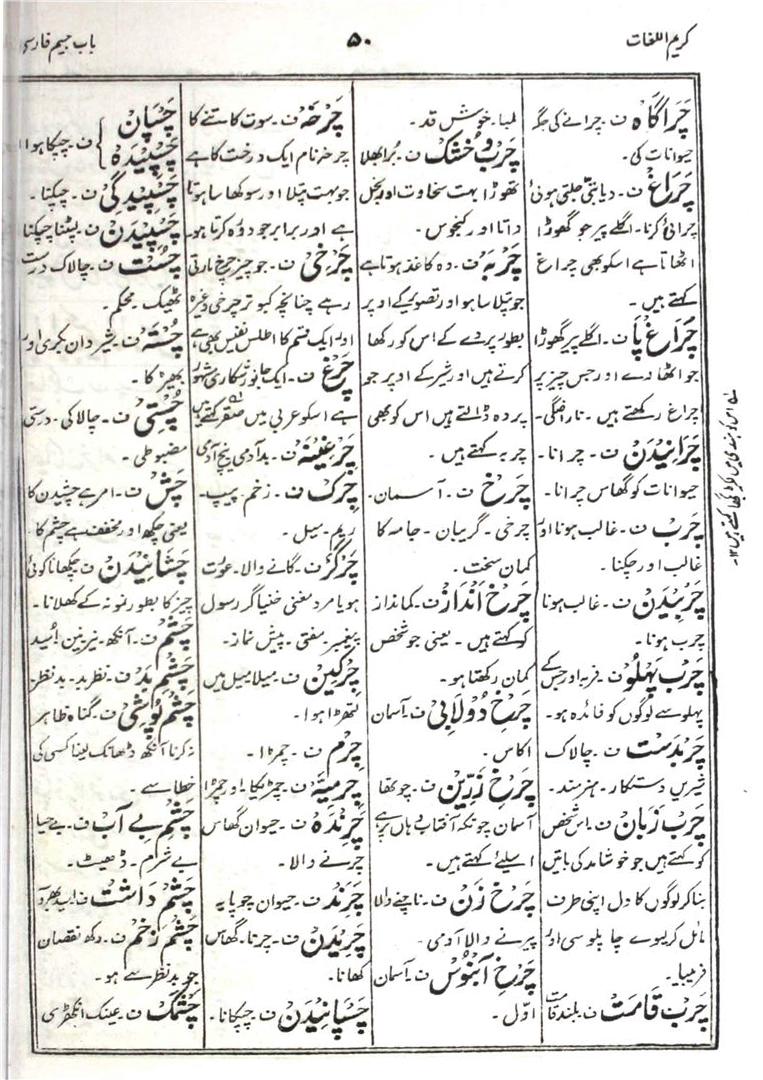 کریم اللغات
۵۰
باب جیم فارسی
چَراگاہ ف ۔ چرانے کی جگہ
حیوانات کی ۔
چَراغ ف ۔ دیا بتی جلتی ہوئی
چرائی کرنا ۔ اگلے پیر جو گھوڑا
اٹھاتا ہے اسکو بھی چراغ
کہتے ہیں ۔
چَراغ پَا ف ۔ اگلے پیر گھوڑا
جو اٹھا دے اور جس چیز پر
چراغ رکھتے ہیں ۔ ناراضگی ۔
چَرانِیدَن ف ۔ چرانا ۔
حیوانات کو گھاس چرانا ۔
چَرب ف ۔ غالب ہونا اور
غالب اور چکنا ۔
چَربِیدَن ف ۔ غالب ہونا
چرب ہونا ۔
چَرب پہلُو ف ۔ فربہ اور جس کے
پہلو سے لوگوں کو فائدہ ہو ۔
چَربدَست ف ۔ چالاک
شیریں دستکار ۔ ہنرمند ۔
چَرب زَبان ف ۔ اس شخص
کو کہتے ہیں جو خوشامد کی باتیں
بناکر لوگوں کا دل اپنی طرف
مائل کر لیوے چاپلوسی اور
فریبیا ۔
چَرب قامَت ف ۔ بلند قامت
لمبا ۔ خوش قد ۔
چَرب وخُشک ف ۔ برا بھلا
تھوڑا بہت سخاوت اور بخل
داتا اور کنجوس ۔
چَربہ ف ۔ وہ کاغذ ہوتا ہے
جو پتلا سا ہو اور تصویر کے اوپر
بطور پردے کے اس کو رکھا
کرتے ہیں اور شیر کے اوپر جو
پردہ ڈالتے ہیں اس کو بھی
چربہ کہتے ہیں ۔
چَرخ ف ۔ آسمان ۔
چرخی ۔ گریبان ۔ جامہ کا
کمان سخت ۔
چَرخ اَنداز ف ۔ کماندار
کو کہتے ہیں ۔ یعنی جو شخص
کمان رکھتا ہو ۔
چَرخِ دُولابی ف ۔ آسمان
اکاس ۔
چَرخِ زَرِّین ف ۔ چوتھا
آسمان چونکہ آفتاب وہاں پر ہے
اسلیے کہتے ہیں ۔
چَرخ زَن ف ۔ ناچنے والا
پیرنے والا آدمی ۔
چَرخِ آبنُوس ف ۔ آسمان
اوّل ۔
چَرخہ ف ۔ سوت کاتنے کا
چرخہ نام ایک درخت کا ہے
جو بہت پتلا اور سوکھا سا ہوتا
ہے اور برابر جو دؤہ کرتا ہو
چَرخی ف ۔ جو چیز چرخ مارتی
رہے چنانچہ کبوتر چرخی وغیرہ
اور ایک قسم کا اطلس نفیس بھی ہے
چَرغ ف ۔ ایک جانور شکاری مشہور
ہے اسکو عربی میں صقر کہتے ہیں
چَرغِینَہ ف ۔ بد آدمی پنچ آدمی
چِرک ف ۔ زخم ۔ پیپ ۔
ریم ۔ میل ۔
چَرگَر ف ۔ گانے والا ۔ عورت
ہو یا مرد مغنی خنیاگر رسول
پیغمبر ۔ مفتی ۔ پیش نماز ۔
چِرکین ف ۔ میلا میل میں
لتھڑا ہوا ۔
چَرم ف ۔ چمڑا ۔
چَرمِینَہ ف ۔ چمڑیکا ۔ اور چمڑا
چَرِندَہ ف ۔ حیوان گھاس
چرنے والا ۔
چَرَند ف ۔ حیوان چوپایہ
چَرِیدَن ف ۔ چرنا ۔ گھاس
کھانا ۔
چَسپانِیدَن ف ۔ چپکانا ۔
چَسپان
چَسپِیدَہ } ف ۔ چپکا ہوا
چَسپِیدگی ف ۔ چپکنا ۔
چَسپِیدَن ف ۔ لپٹنا چپکنا
چُست ف ۔ چالاک درست
ٹھیک ۔ محکم ۔
چُستَہ ف ۔ شیردان بکری اور
بھیڑ کا ۔
چُستی ف ۔ چالاکی ۔ درستی
مضبوطی ۔
چَش ف ۔ امر ہے چشیدن کا
یعنی چکھ اور مخفف ہے چشم کا
چَشانِیدَن ف ۔ چکھانا کوئی
چیز کا بطور نمونہ کے کھلانا ۔
چَشم ف ۔ آنکھ ۔ نین امید
چَشمِ بَد ف ۔ نظر بد ۔ بد نظر
چَشم پوشی ف ۔ گناہ ظاہر
نہ کرنا آنکھ ڈھانک لینا کسی کی
خطا سے ۔
چَشم بے آب ف ۔ بے حیا
بے شرم ۔ ڈھیٹ ۔
چَشم داشت ف ۔
چَشم زَخم ف ۔ دکھ نقصان
جو بد نظر سے ہو ۔
چَشمک ف ۔ عینک انکھڑی